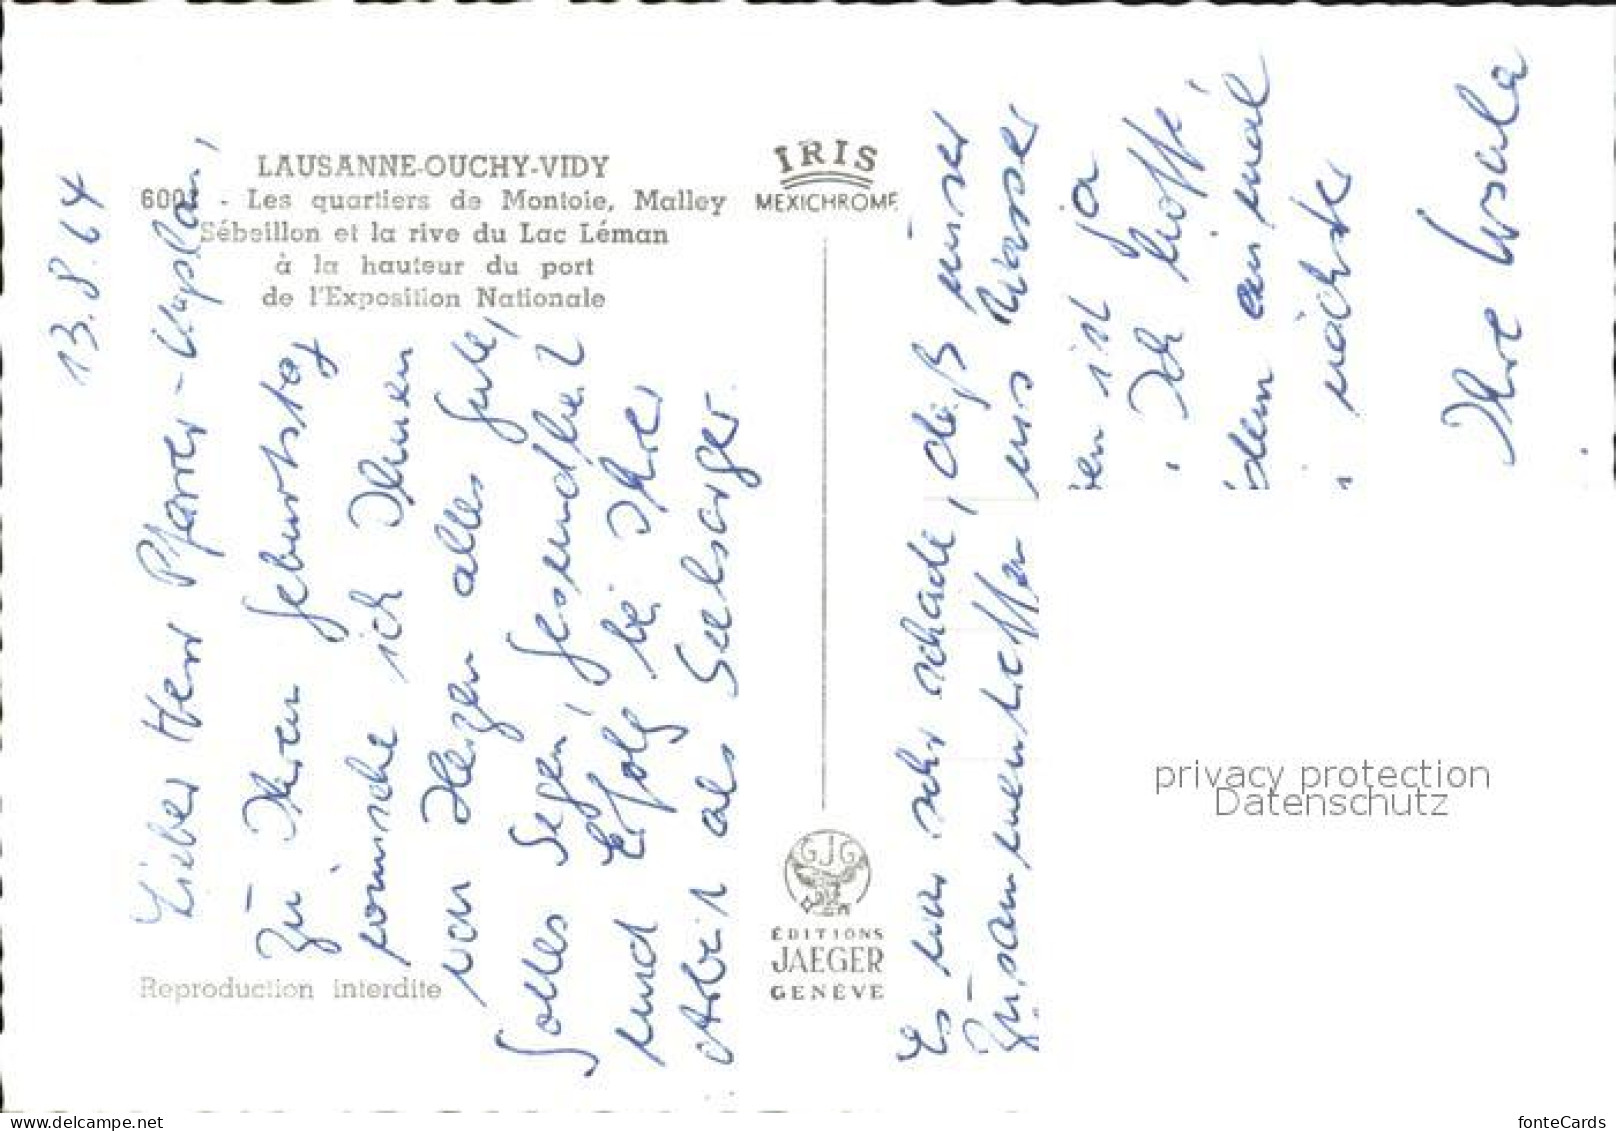 LAUSANNE-OUCHY-VIDY
- Les quartiers de Montoie, Malley
Sébeillon et la rive du Lac Léman
à la hauteur du port
de l'Exposition Nationale
IRIS
MEXICHROME
13.8.64
Lieber Herr Pfarrer-Kaplan,
Zu Ihren Geburtstag
wünsche ich Ihnen
von Herzen alles Gute,
Gottes Segen, Gesundheit
und Erfolg bei Ihrer
Arbeit als Seelsorger.
Es war sehr schade, daß unser
Zusammentreffen uns
ist ja
Ich hoffe,
einmal
Ihre Ursula
Reproduction interdite
GJG
ÉDITIONS
JAEGER
GENÈVE
privacy protection
Datenschutz
www.delcampe.net
fonteCards